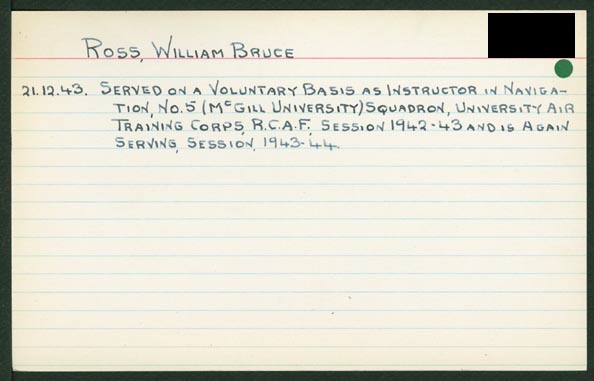 ROSS, WILLIAM BRUCE
21.12.43. SERVED ON A VOLUNTARY BASIS AS INSTRUCTOR IN NAVIGA-
TION, NO.5 (McGILL UNIVERSITY) SQUADRON, UNIVERSITY AIR
TRAINING CORPS, R.C.A.F., SESSION 1942-43 AND IS AGAIN
SERVING, SESSION, 1943-44.